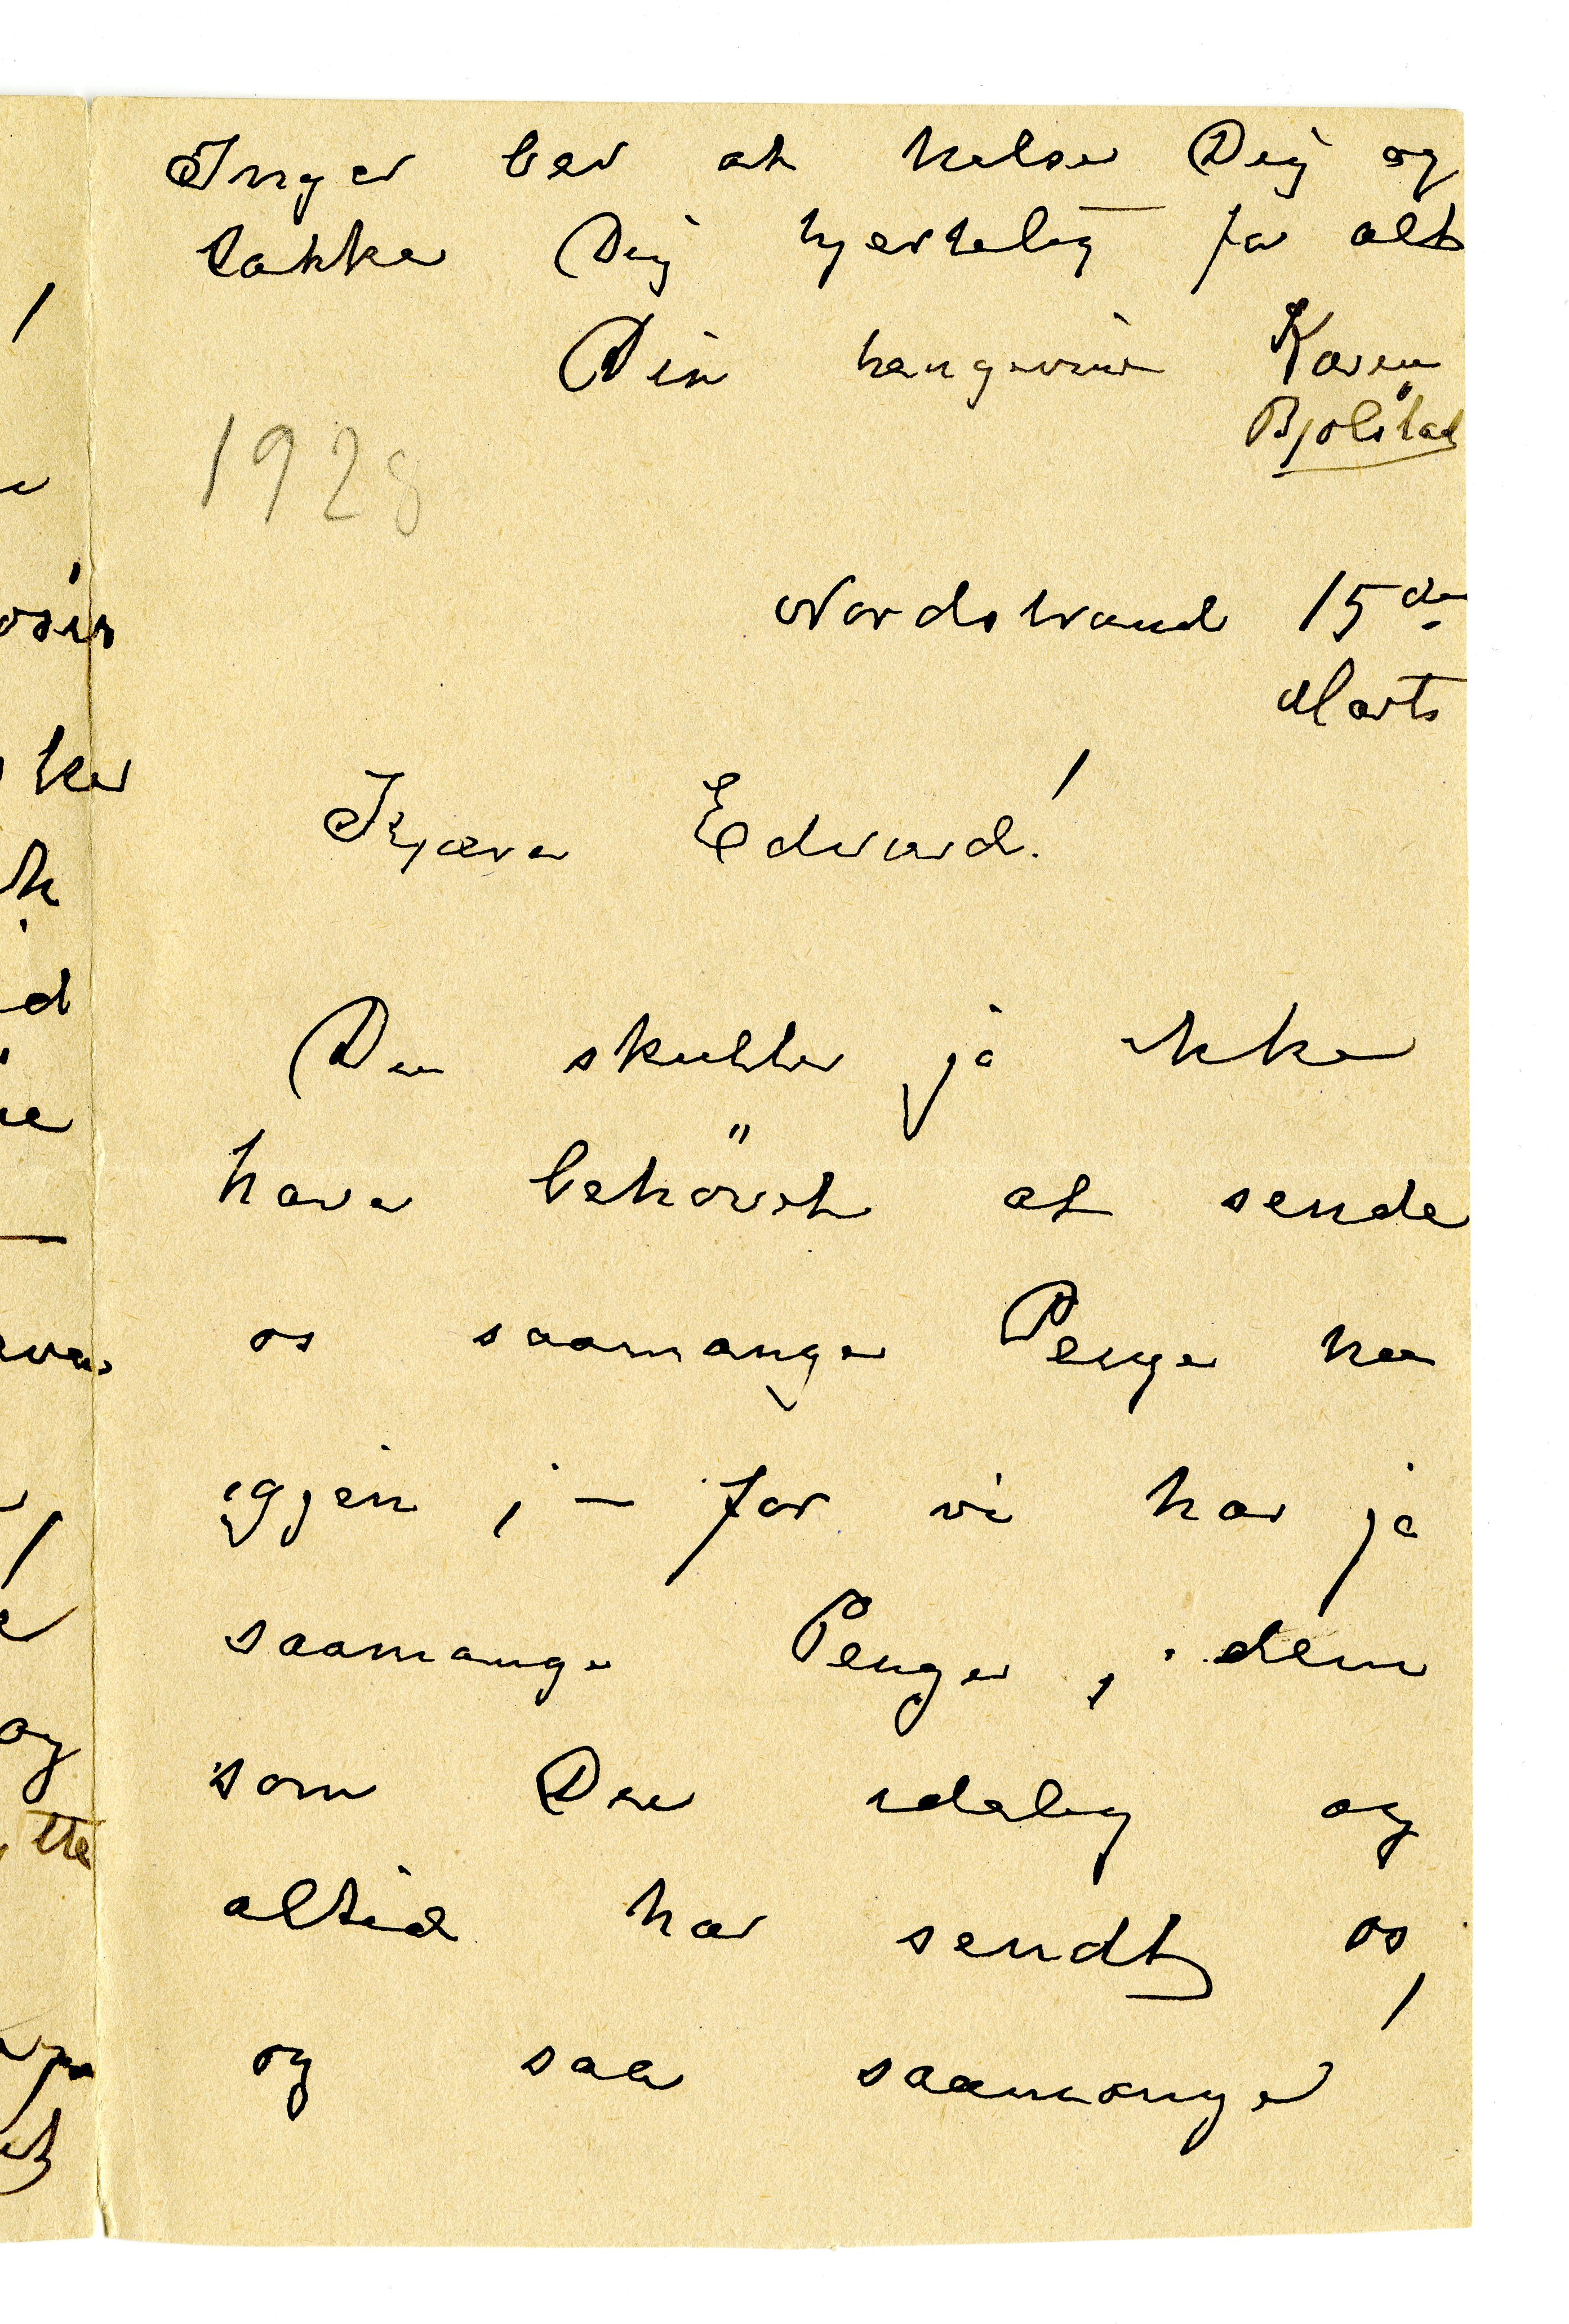 Inger ber at helse Dig og
takke Dig hjertelig for alt
Din hengivne Karen
Bjølstad
1928
Nordstrand 15de
Marts
Kjære Edvard!
Du skulde ja ikke
have behövet at sende
os saamange Penge nu
igjen, – for vi har ja
saamange Penge, dem
som Du idelig og
altid har sendt os,
og saa saamange